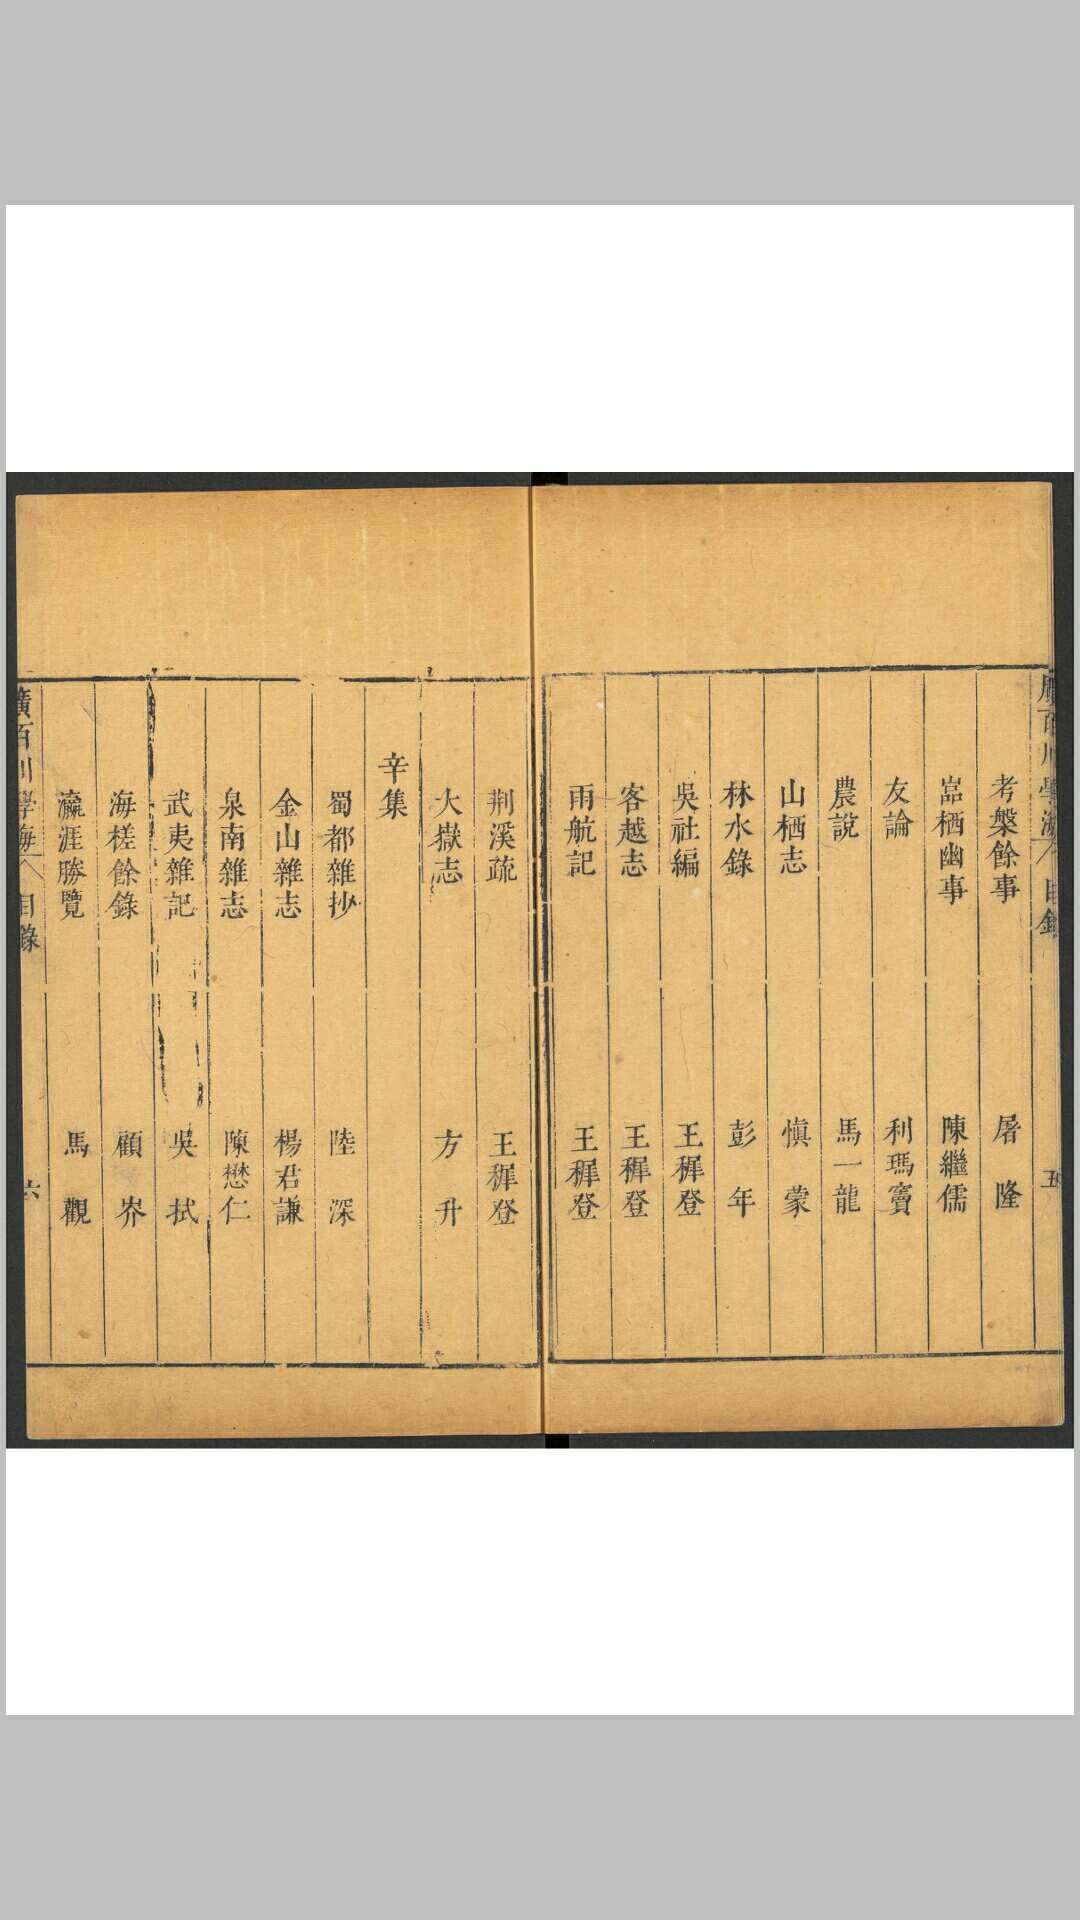 廣百川學海 目錄 五
考槃餘事 屠隆
嵓栖幽事 陳繼儒
友論 利瑪竇
農說 馬一龍
山栖志 慎蒙
林水錄 彭年
吳社編 王穉登
客越志 王穉登
雨航記 王穉登
荆溪疏 王穉登
大嶽志 方升
辛集
蜀都雜抄 陸深
金山雜志 楊君謙
泉南雜志 陳懋仁
武夷雜記 吳拭
海槎餘錄 顧岕
瀛涯勝覽 馬觀
廣百川學海 目錄 六